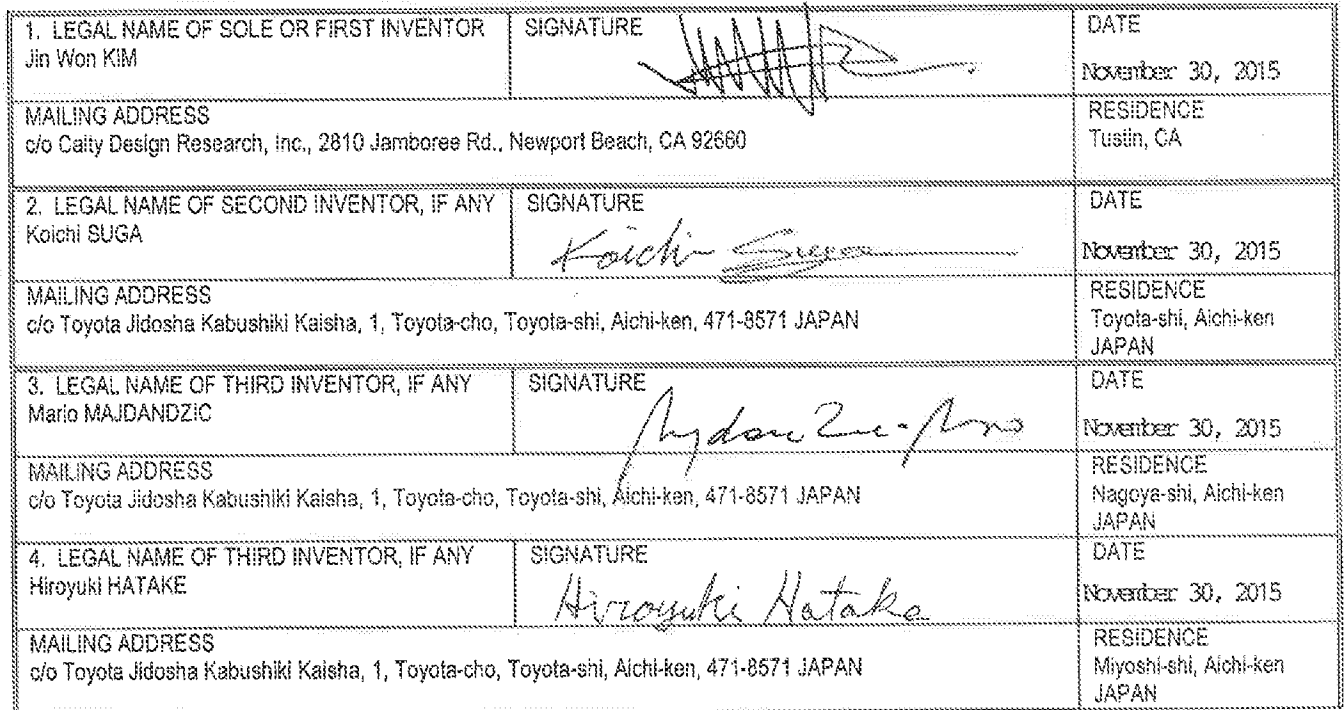 1. LEGAL NAME OF SOLE OR FIRST INVENTOR
Jin Won KIM
SIGNATURE
DATE
November 30, 2015
MAILING ADDRESS
c/o Calty Design Research, Inc., 2810 Jamboree Rd., Newport Beach, CA 92660
RESIDENCE
Tustin, CA
2. LEGAL NAME OF SECOND INVENTOR, IF ANY
Koichi SUGA
SIGNATURE
Koichi Suga
DATE
November 30, 2015
MAILING ADDRESS
c/o Toyota Jidosha Kabushiki Kaisha, 1, Toyota-cho, Toyota-shi, Aichi-ken, 471-8571 JAPAN
RESIDENCE
Toyota-shi, Aichi-ken
JAPAN
3. LEGAL NAME OF THIRD INVENTOR, IF ANY
Mario MAJDANDZIC
SIGNATURE
DATE
November 30, 2015
MAILING ADDRESS
c/o Toyota Jidosha Kabushiki Kaisha, 1, Toyota-cho, Toyota-shi, Aichi-ken, 471-8571 JAPAN
RESIDENCE
Nagoya-shi, Aichi-ken
JAPAN
4. LEGAL NAME OF THIRD INVENTOR, IF ANY
Hiroyuki HATAKE
SIGNATURE
Hiroyuki Hatake
DATE
November 30, 2015
MAILING ADDRESS
c/o Toyota Jidosha Kabushiki Kaisha, 1, Toyota-cho, Toyota-shi, Aichi-ken, 471-8571 JAPAN
RESIDENCE
Miyoshi-shi, Aichi-ken
JAPAN